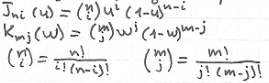 J_{ni}(u) = \binom{n}{i} u^i (1-u)^{n-i}
K_{mj}(w) = \binom{m}{j} w^j (1-w)^{m-j}
\binom{n}{i} = \frac{n!}{i!(n-i)!} \binom{m}{j} = \frac{m!}{j!(m-j)!}